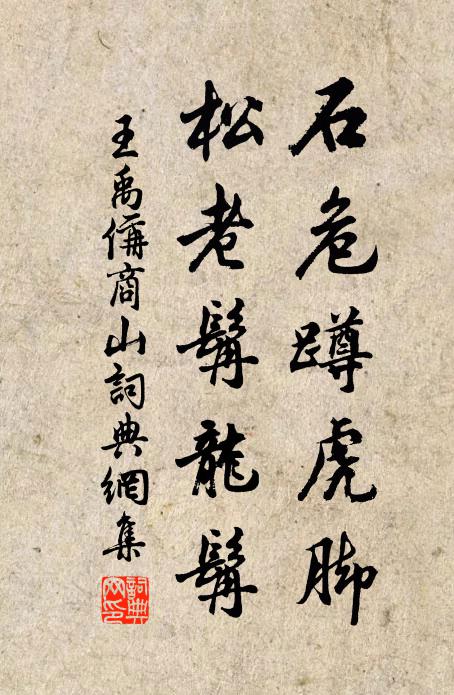 石危蹲虎脚
松老鬅龍鬅
王禹偁商山詞典網集
詞典網印